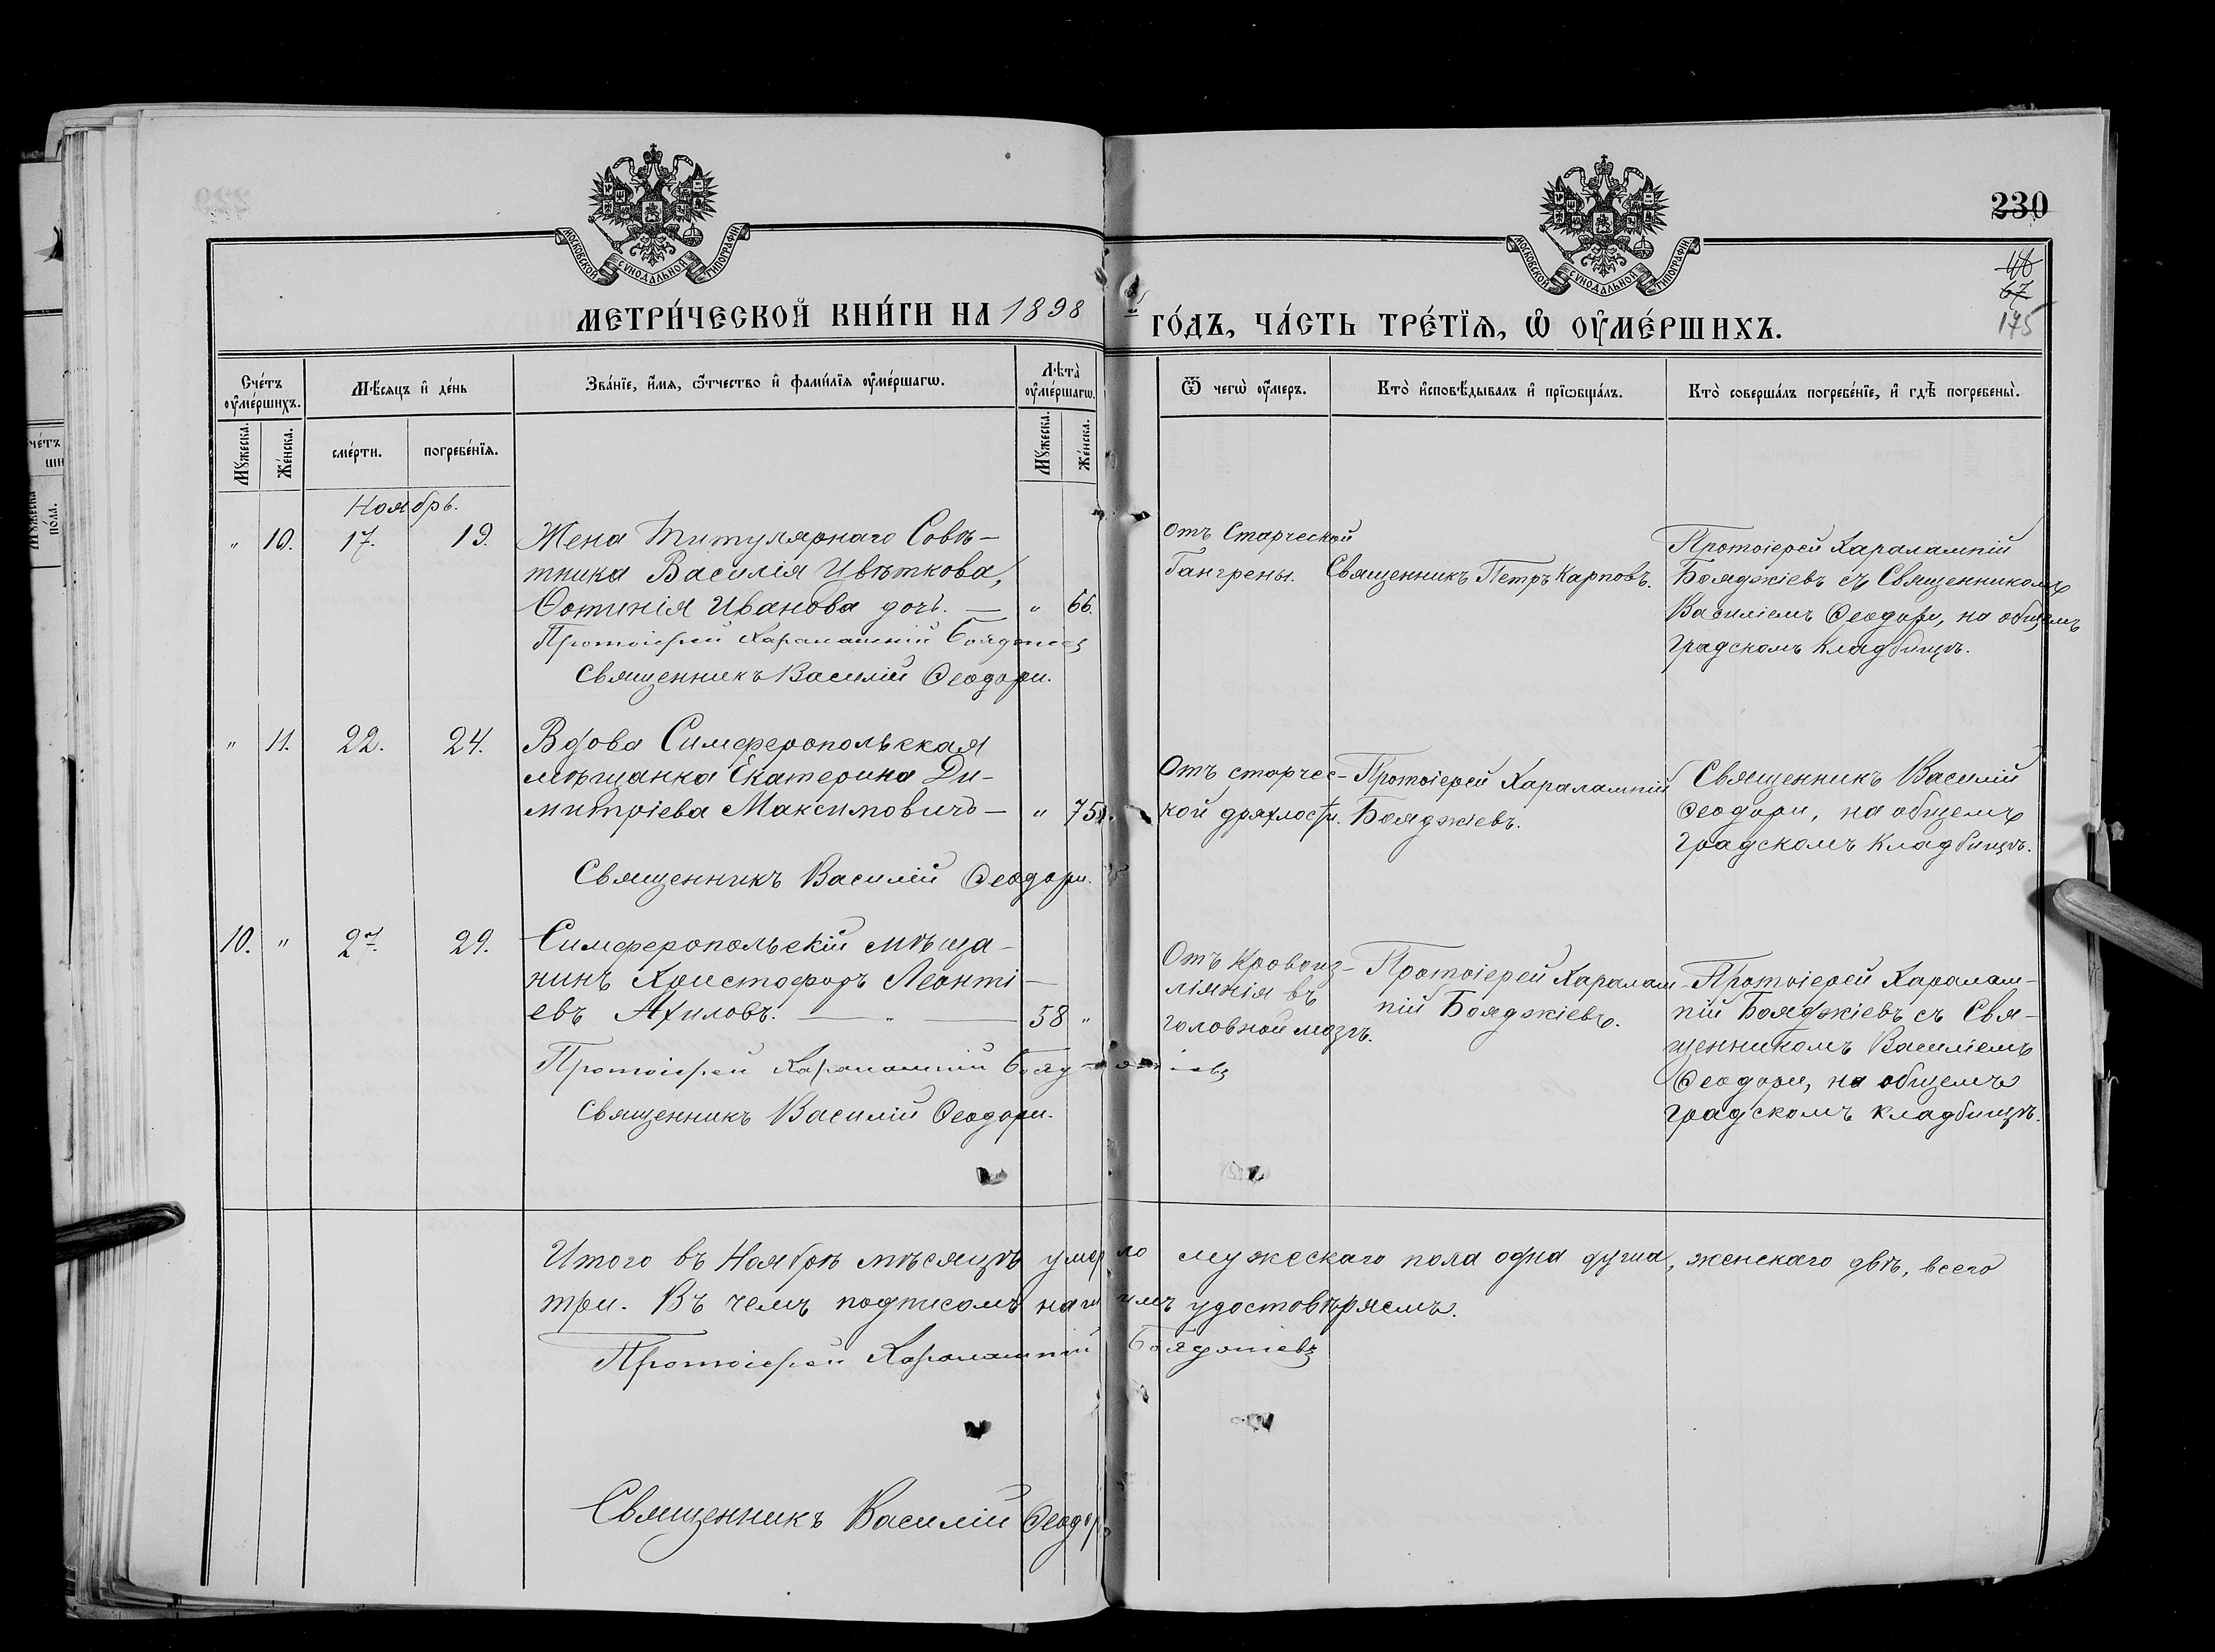 МОСКОВСКОЙ СѴНОДАЛЬНОЙ ТИПОГРАФІИ
МОСКОВСКОЙ СѴНОДАЛЬНОЙ ТИПОГРАФІИ
230
46
67
175
МЕТРИ́ЧЕСКОЙ КНИ́ГИ НА 1898 ГО́ДЪ, ЧА́СТЬ ТРЕ́ТЇѦ, Ѡ҆ ОУ҆МЕ́РШИХЪ.
Сче́тъ оу҆ме́ршихъ.
Мѣ́сяцъ и҆ де́нь
Зва́нїе, и҆́мя, ѻ҆́тчество и҆ фами́лїя оу҆ме́ршагѡ.
Лѣта̀ оу҆ме́ршагѡ.
Ѿ чегѡ̀ оу҆́меръ.
Кто̀ и҆сповѣ́дывалъ и҆ прїѡбща́лъ.
Кто̀ соверша́лъ погребе́нїе, и҆ гдѣ̀ погребены̀.
Мꙋ́жеска.
Же́нска.
сме́рти.
погребе́нїя.
Мꙋ́жеска.
Же́нска.
Ноябрь.
" 10. 17. 19. Жена Титулярнаго Совѣ-
тника Василія Цвѣткова,
Фотинія Иванова дочь. — " 66.
Протоіерей Харалампій Бояджіев
Священникъ Василій Ѳеодори.
отъ Старческой
Гангрены.
Священникъ Петръ Карповъ.
Протоіерей Харалампій
Бояджіевъ съ Священникомъ
Василіемъ Ѳеодори, на общемъ
градскомъ кладбищѣ.
" 11. 22. 24. Вдова Симферопольская
мѣщанка Екатерина Ди-
митріева Максимовичъ — " 75.
Священникъ Василій Ѳеодори.
Отъ старчес-
кой дряхлости.
Протоіерей Харалампій
Бояджіевъ.
Священникъ Василій
Ѳеодори, на общемъ
градскомъ кладбищѣ.
10. " 27. 29. Симферопольскій мѣща-
нинъ Христофоръ Леонті-
евъ Ахиловъ. — " — 58 "
Протоіерей Харалампій Бояджіевъ
Священникъ Василій Ѳеодори.
Отъ Кровоиз-
ліянія въ
головной мозгъ.
Протоіерей Харалам-
пій Бояджіевъ.
Протоіерей Харалам-
пій Бояджіевъ съ Свя-
щенникомъ Василіемъ
Ѳеодори, на общемъ
градскомъ кладбищѣ.
Итого въ Ноябрѣ мѣсяцѣ умерло мужескаго пола одна душа, женскаго двѣ, всего
три. Въ чемъ подписомъ нашимъ удостовѣряемъ.
Протоіерей Харалампій Бояджіевъ
Священникъ Василій Ѳеодор